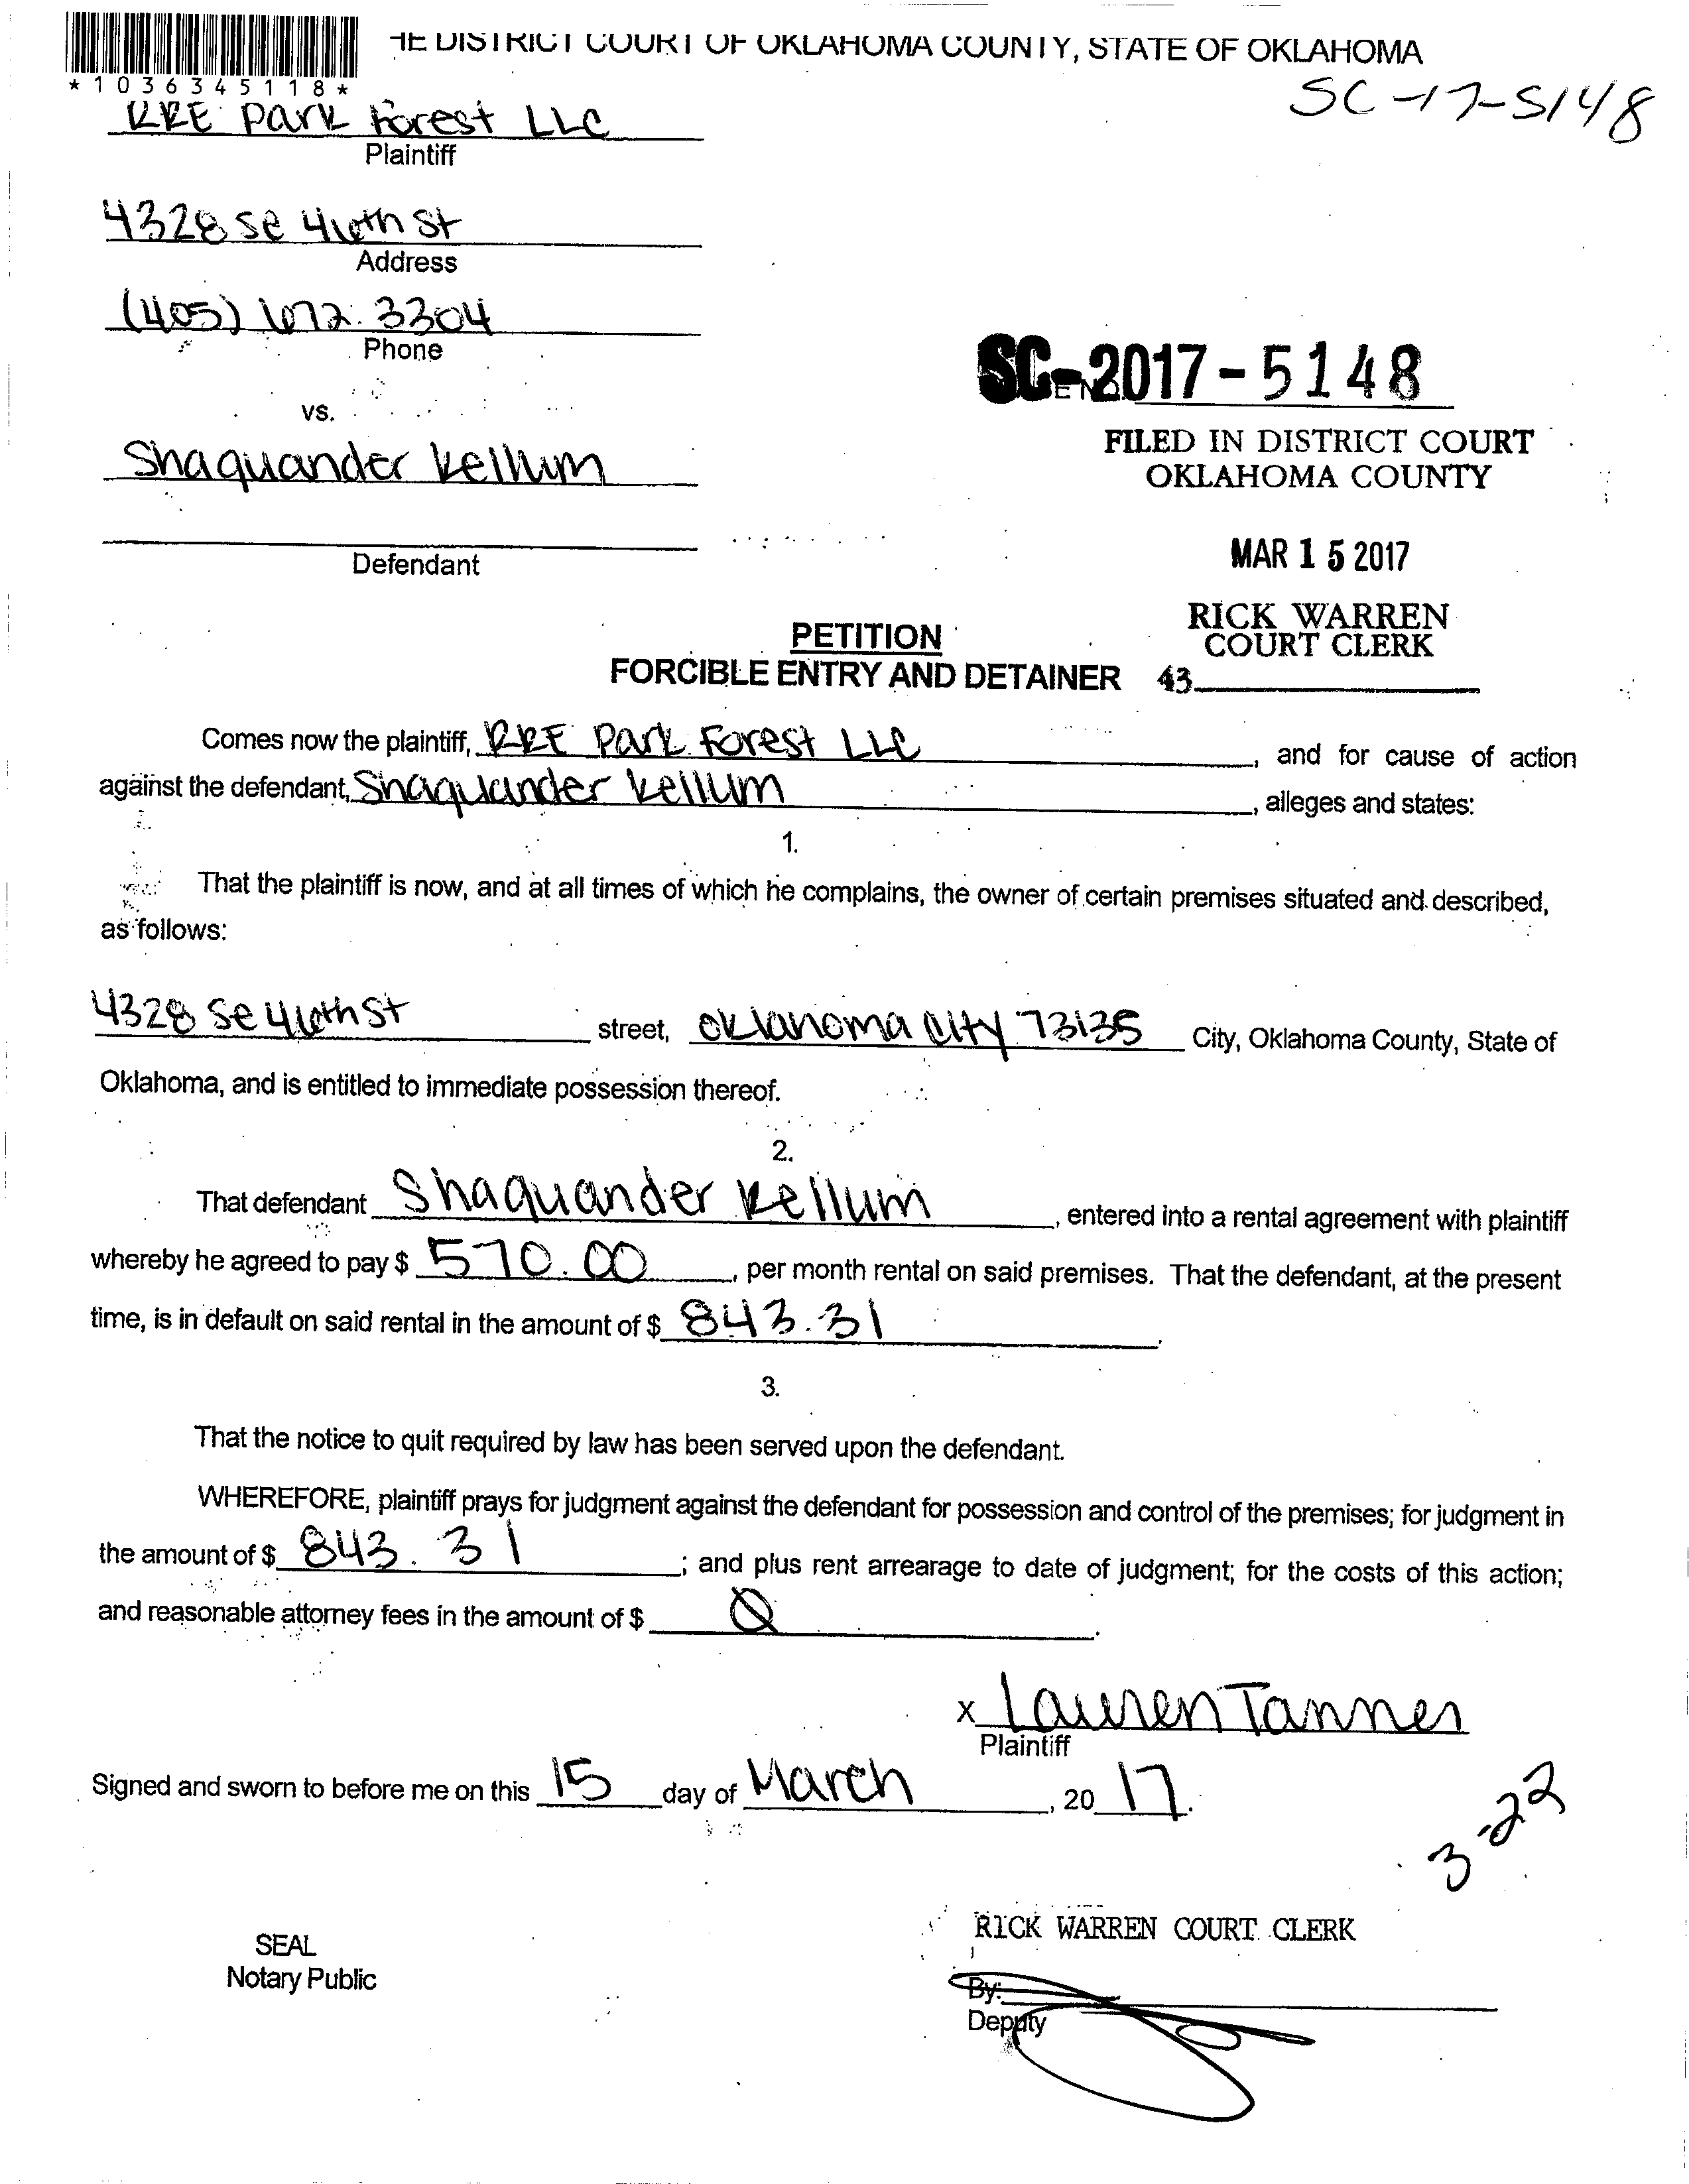 HE DISTRICT COURT OF OKLAHOMA COUNTY, STATE OF OKLAHOMA
*1036345118*
SC-17-5148
RRE Park Forest LLC
Plaintiff
4328 SE 46th St
Address
(405) 672.3304
Phone
SC-2017-5148
vs.
FILED IN DISTRICT COURT
OKLAHOMA COUNTY
Shaquander Kellum
MAR 15 2017
Defendant
RICK WARREN
COURT CLERK
43
PETITION
FORCIBLE ENTRY AND DETAINER
Comes now the plaintiff, RRE Park Forest LLC, and for cause of action
against the defendant, Shaquander Kellum, alleges and states:
1.
That the plaintiff is now, and at all times of which he complains, the owner of certain premises situated and described,
as follows:
4328 SE 46th St street, Oklahoma City 73135 City, Oklahoma County, State of
Oklahoma, and is entitled to immediate possession thereof.
2.
That defendant Shaquander Kellum, entered into a rental agreement with plaintiff
whereby he agreed to pay $ 570.00, per month rental on said premises. That the defendant, at the present
time, is in default on said rental in the amount of $ 843.31.
3.
That the notice to quit required by law has been served upon the defendant.
WHEREFORE, plaintiff prays for judgment against the defendant for possession and control of the premises; for judgment in
the amount of $ 843.31; and plus rent arrearage to date of judgment; for the costs of this action;
and reasonable attorney fees in the amount of $ 0.
x Lauren Tanner
Plaintiff
Signed and sworn to before me on this 15 day of March, 2017.
3-22
RICK WARREN COURT CLERK
SEAL
Notary Public
By:
Deputy